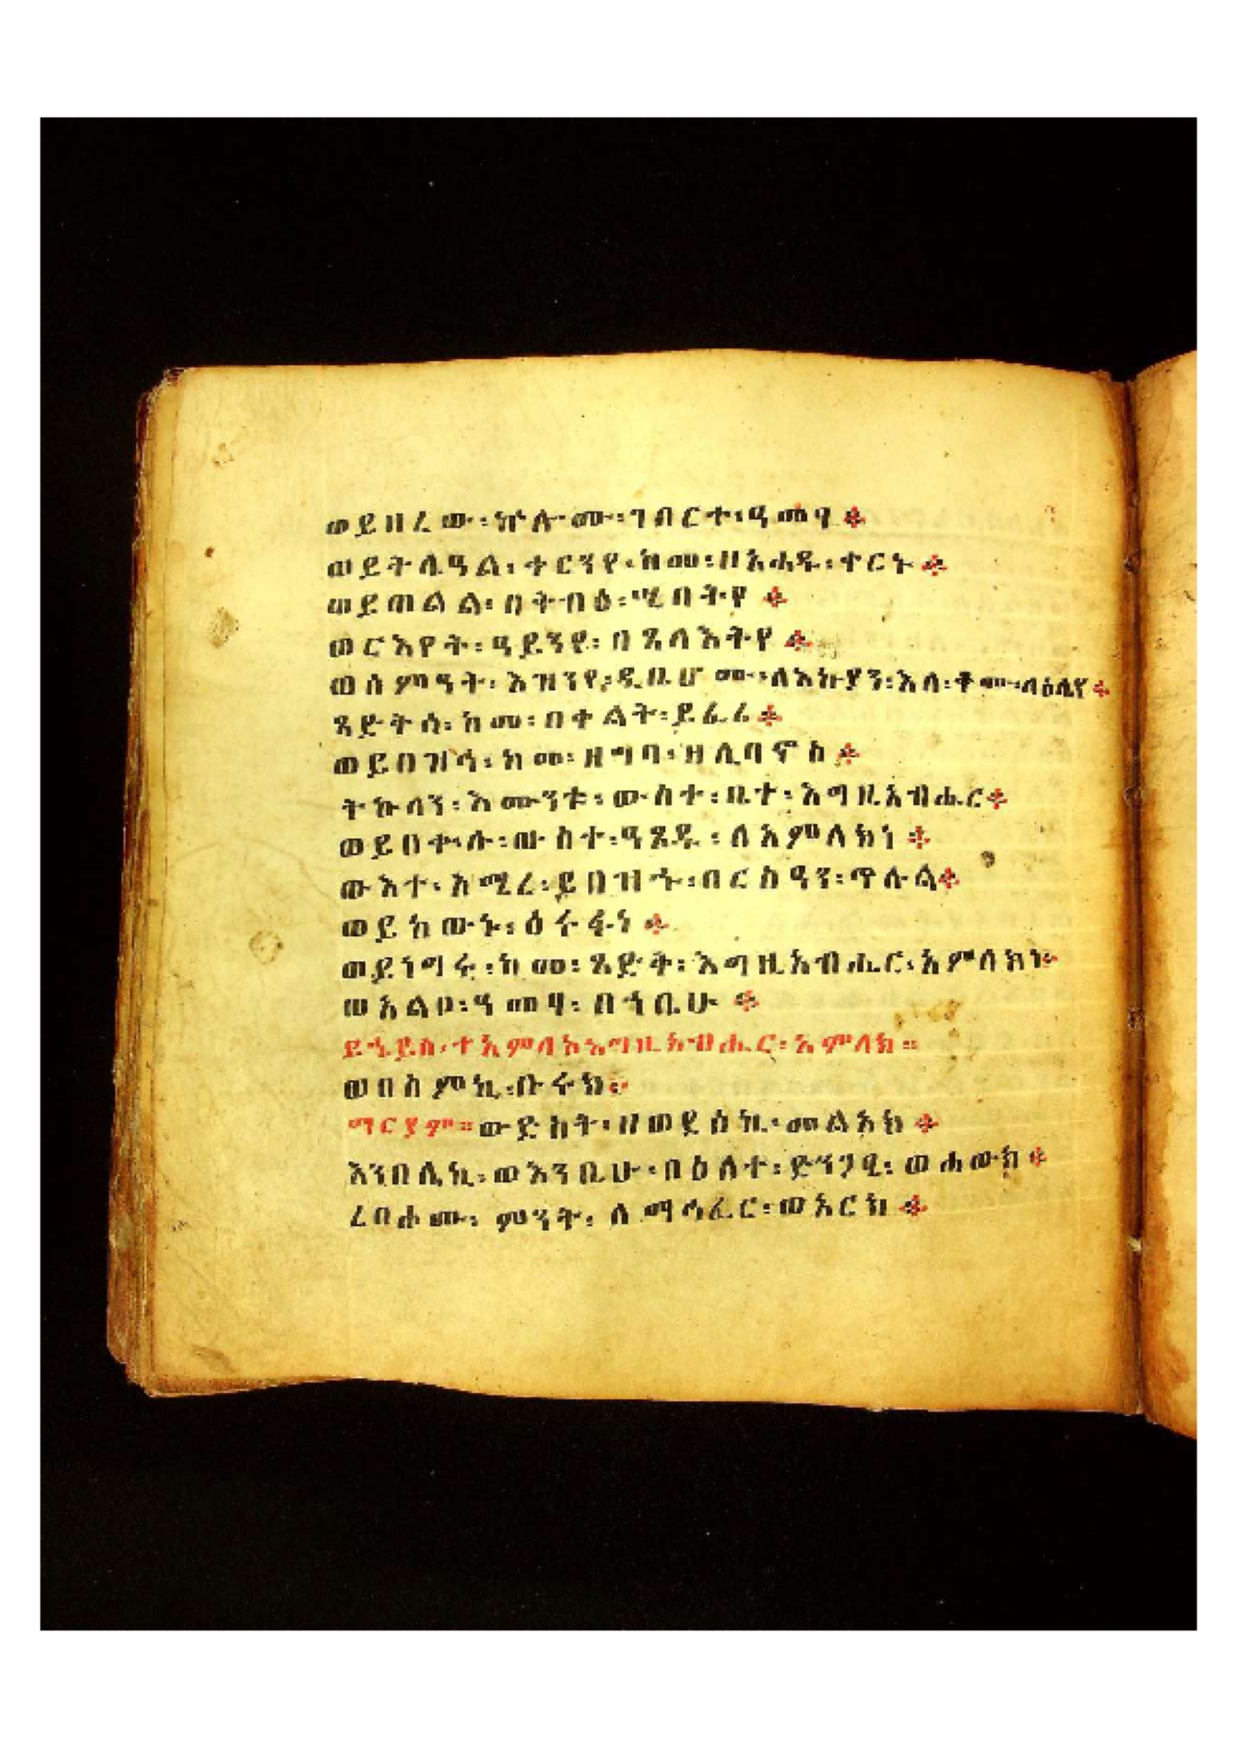 ወይዘረው፡ኵሎሙ፡ገበርተ፡ዓመፃ፨
ወይትሌዓል፡ቀርንየ፡ከመ፡ዘአሐዱ፡ቀርኑ፨
ወይጠልል፡በትብዕ፡ሢበትየ፨
ወርእየት፡ዓይንየ፡በጸላእትየ፨
ወሰምዓት፡እዝንየ፡ዲቤሆሙ፡ለእኩያን፡እለ፡ቆሙ፡ላዕሌየ፨
ጻድቅሰ፡ከመ፡በቀልት፡ይፈሪ፨
ወይበዝኅ፡ከመ፡ዘግባ፡ዘሊባኖስ፨
ትኩላን፡እሙንቱ፡ውስተ፡ቤተ፡እግዚአብሔር፨
ወይበቍሉ፡ውስተ፡ዓጸዱ፡ለአምላክነ፨
ውእተ፡አሚረ፡ይበዝኁ፡በርስዓን፡ጥሉል፨
ወይከውኑ፡ዕሩፋነ፨
ወይነግሩ፡ከመ፡ጻድቅ፡እግዚአብሔር፡አምላክነ፨
ወአልቦ፡ዓመፃ፡በኀቤሁ፨
ወበስምኪ፡ቡሩክ፨
ማርያም።ውድከት፡ዘወይሰኪ፡መልአክ፨
እንበሌኪ፡ወእንቢሁ፡በዕለተ፡ድንጋፂ፡ወሐውክ፨
ረባሐሙ፡ምንት፡ለማኅፈር፡ወአርክ፨